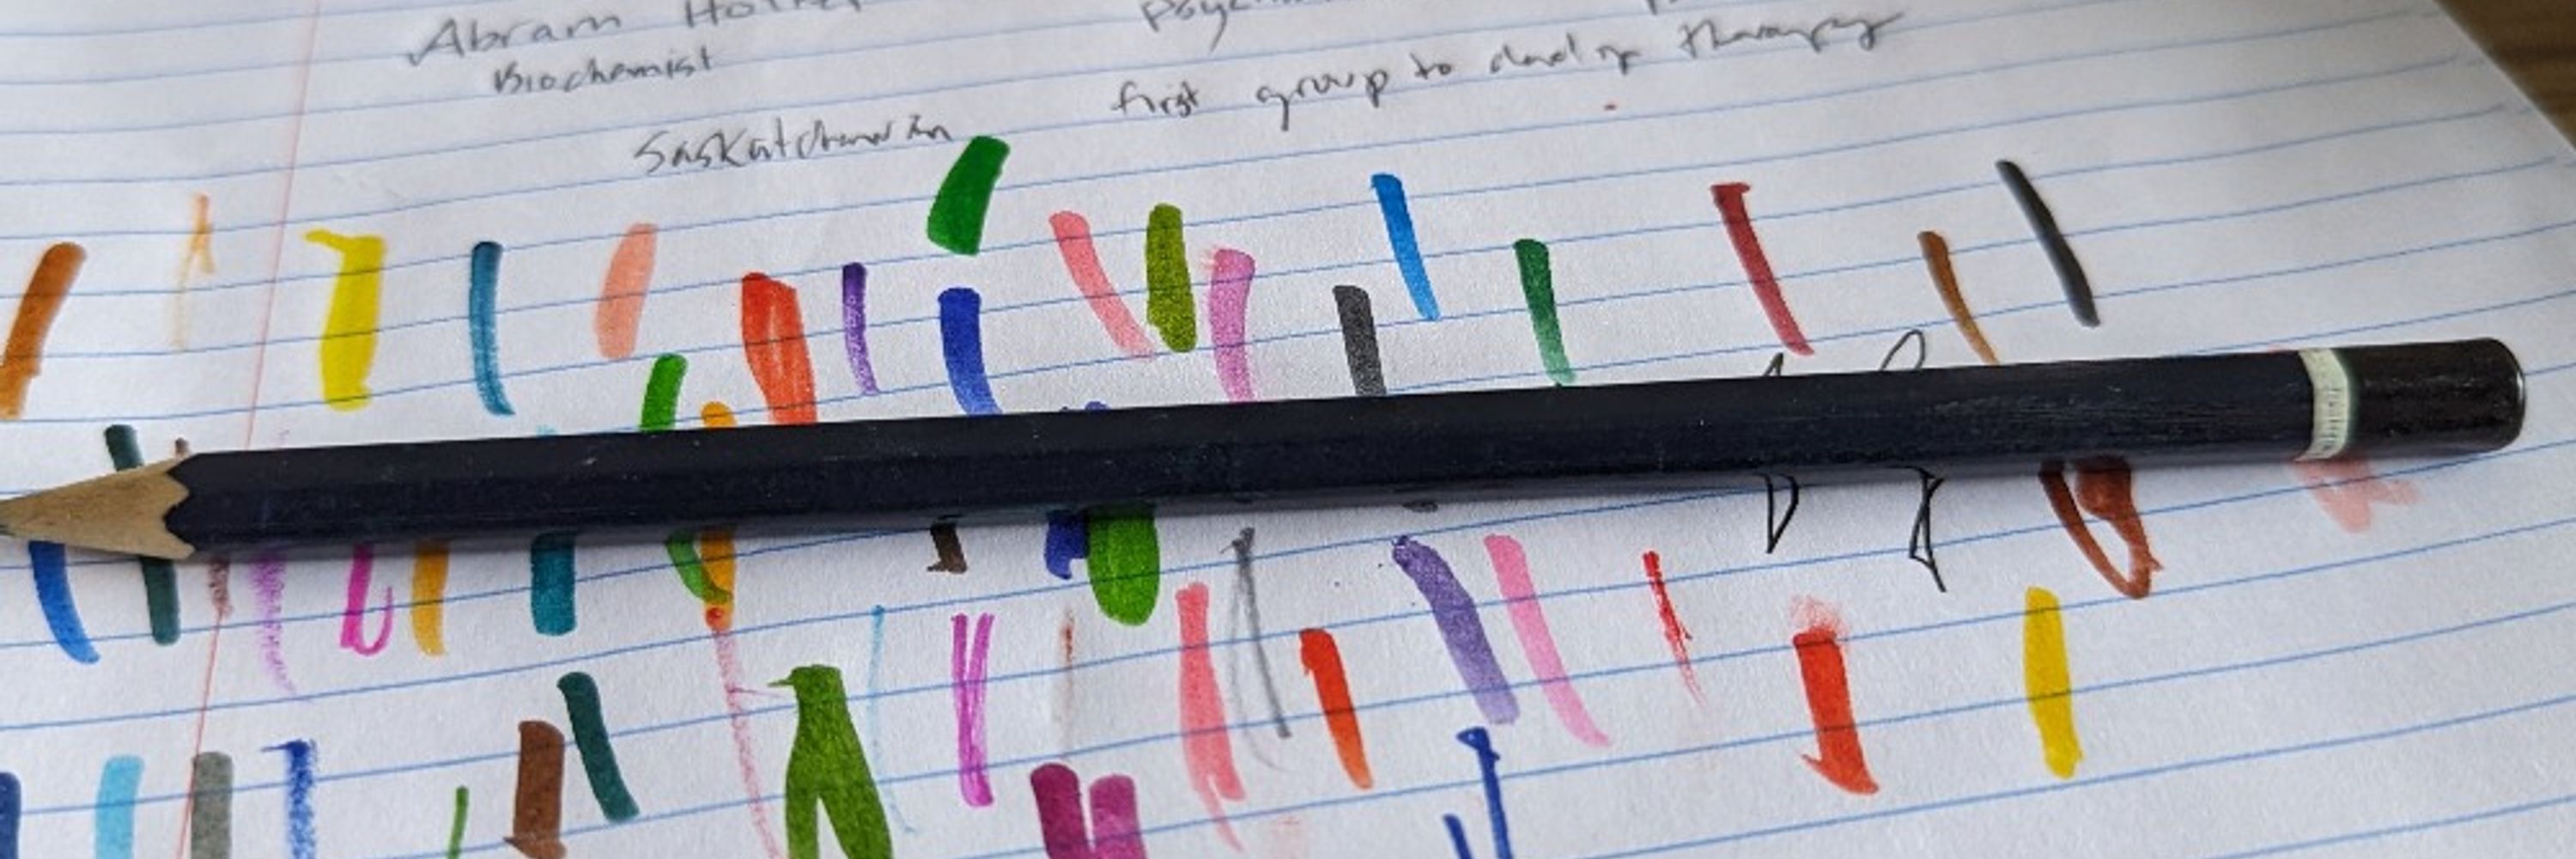 Abram
Biochemist
first group to develop therapy
Saskatchewan